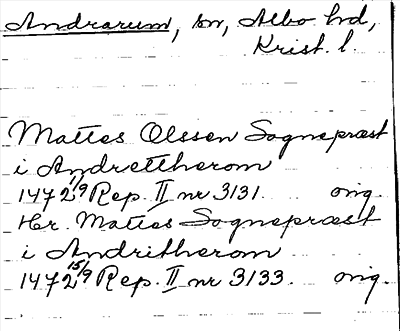 Andrarum, sn, Albo hd,
Krist. l.
Mattes Olssen Sognepræst
i Andrettherom
1472 11/9 Rep. II nr 3131. orig.
Hr. Maties Sognepræst
i Andritherom
1472 15/9 Rep. II nr 3133. orig.